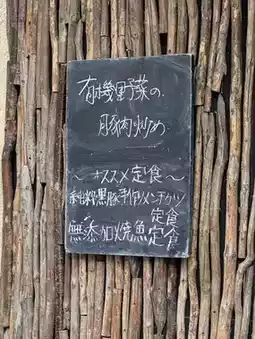 有機野菜の
豚肉炒め
〜オススメ定食〜
黒豚手作りメンチカツ
定食
無添加焼魚定食